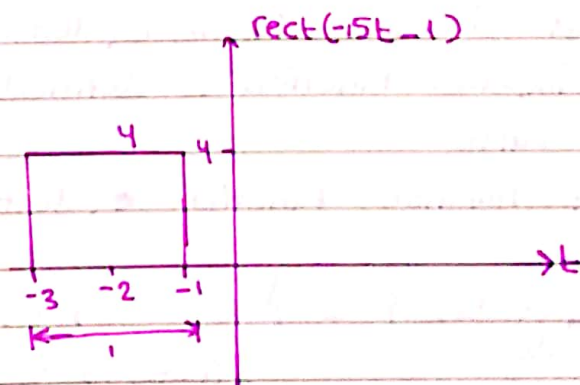 rect(-15t-1)
4
4
t
-3 -2 -1
1